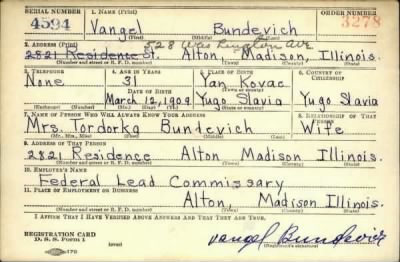 SERIAL NUMBER 1. NAME (Print) ORDER NUMBER
4594 Vangel Bundevich 3278
(First) (Middle) (Last)
528 Washington Ave
2. ADDRESS (Print)
2821 Residence St. Alton, Madison, Illinois.
(Number and street or R. F. D. number) (Town) (County) (State)
3. TELEPHONE 4. AGE IN YEARS 5. PLACE OF BIRTH 6. COUNTRY OF CITIZENSHIP
None 31 Yan Kovac
DATE OF BIRTH (Town or county)
March 12, 1909 Yugo Slavia Yugo Slavia
(Exchange) (Number) (Mo.) (Day) (Yr.) (State or country)
7. NAME OF PERSON WHO WILL ALWAYS KNOW YOUR ADDRESS 8. RELATIONSHIP OF THAT PERSON
Mrs. Tordorka Bundevich Wife
(Mr., Mrs., Miss) (First) (Middle) (Last)
9. ADDRESS OF THAT PERSON
2821 Residence Alton Madison Illinois.
(Number and street or R. F. D. number) (Town) (County) (State)
10. EMPLOYER'S NAME
Federal Lead Commissary
11. PLACE OF EMPLOYMENT OR BUSINESS
Alton, Madison Illinois.
(Number and street or R. F. D. number) (Town) (County) (State)
I AFFIRM THAT I HAVE VERIFIED ABOVE ANSWERS AND THAT THEY ARE TRUE.
REGISTRATION CARD
D. S. S. Form 1 (over) Vangel Bundevich
(Registrant's signature)